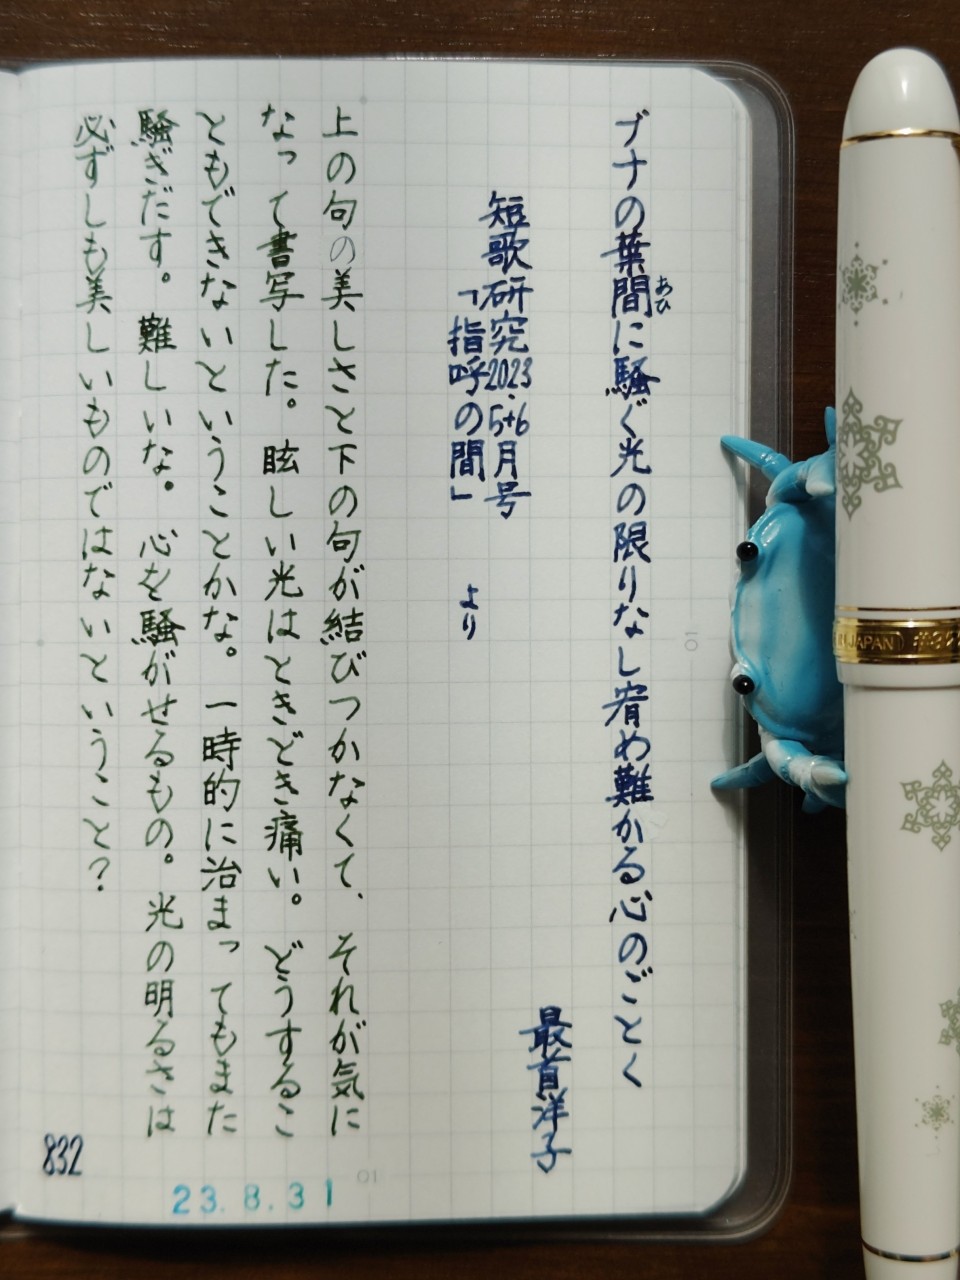 ブナの葉間に騒ぐ光の限りなし宥め難かる心のごとく
あひ
最首洋子
短歌研究2023.5+6月号
「指呼の間」 より
上の句の美しさと下の句が結びつかなくて、それが気に
なって書写した。眩しい光はときどき痛い。どうするこ
ともできないということかな。一時的に治まってもまた
騒ぎだす。難しいな。心を騒がせるもの。光の明るさは
必ずしも美しいものではないということ？
832
23.8.31
01
01
IN JAPAN